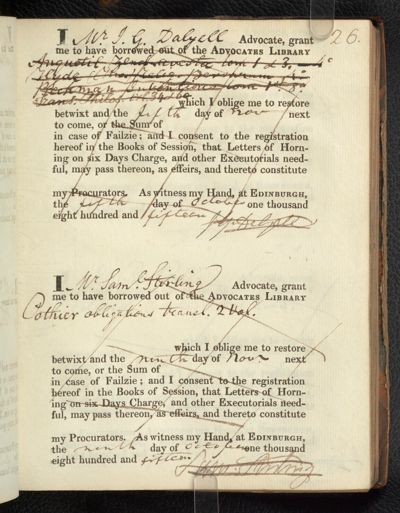 26.
I Mr J. G. Dalyell Advocate, grant
me to have borrowed out of the ADVOCATES LIBRARY
Anquetil Zend-avesta tom 1 & 3,
Hyde
tom 1st
Trans. Philos.
which I oblige me to restore
betwixt and the fifth day of Nov next
to come, or the Sum of
in case of Failzie; and I consent to the registration
hereof in the Books of Session, that Letters of Horn-
ing on six Days Charge, and other Executorials need-
ful, may pass thereon, as effeirs, and thereto constitute
my Procurators. As witness my Hand, at EDINBURGH,
the fifth day of October one thousand
eight hundred and fifteen J G Dalyell
I Mr Saml. Stirling Advocate, grant
me to have borrowed out of the ADVOCATES LIBRARY
Pothier obligations transl. 2 Vol.
which I oblige me to restore
betwixt and the ninth day of Novr next
to come, or the Sum of
in case of Failzie; and I consent to the registration
hereof in the Books of Session, that Letters of Horn-
ing on six Days Charge, and other Executorials need-
ful, may pass thereon, as effeirs, and thereto constitute
my Procurators. As witness my Hand, at EDINBURGH,
the ninth day of October one thousand
eight hundred and fifteen Saml Stirling